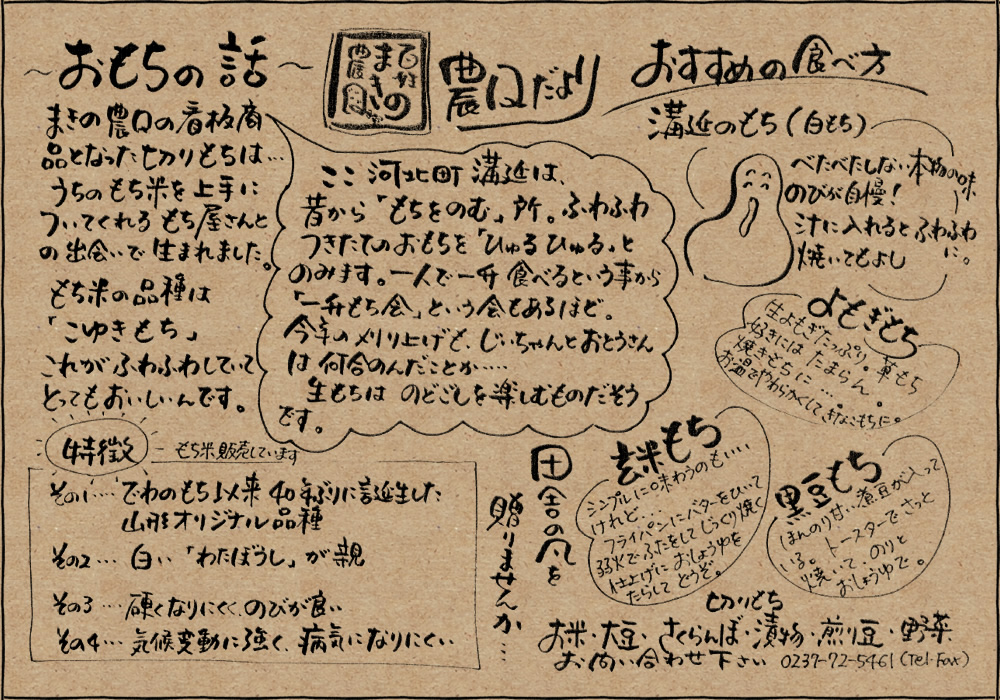 ~おもちの話~
まきの農口の看板商
品となった切りもちは…
うちのもち米を上手に
ついてくれるもち屋さんと
の出会いで生まれました。
もち米の品種は
「こゆきもち」
これがふわふわしていて
とってもおいしいんです。
特徴
もち米販売しています
その1…でわのもち以来40年ぶりに誕生した
山形オリジナル品種
その2…白い「わたぼうし」が親
その3…硬くなりにくく、のびが良い
その4…気候変動に強く、病気になりにくい
まきの
農口だより
ここ河北町溝延は、
昔から「もちをのむ」所。ふわふわ
つきたてのおもちを「ひゅるひゅる」と
のみます。一人で一升食べるという事から
「一升もち会」という会もあるほど。
今年の刈り上げも、じいちゃんとおとうさん
は何合のんだことか……
生もちはのどごしを楽しむものだそう
です。
おすすめの食べ方
溝延のもち(白もち)
べたべたしない本物の味
のびが自慢!
汁に入れるとふわふわ
に。
焼いてもよし
よもぎもち
生よもぎたっぷり。草もち
好きにはたまらん。
焼きもちに…。
お湯でやわらかくしてきなこもちに。
玄米もち
シンプルに味わうのもいい
けれど…
フライパンにバターをひいて
弱火でふたをしてじっくり焼く
仕上げにおしょうゆを
たらしてどうぞ。
黒豆もち
ほんのり甘い煮豆が入って
いる。トースターでさっと
焼いて、のりと
おしょうゆで。
田舎の風を
贈りませんか…
切りもち
お米・大豆・さくらんぼ・漬物・煎り豆・野菜
お問い合わせ下さい 0237-72-5461(Tel・Fax)